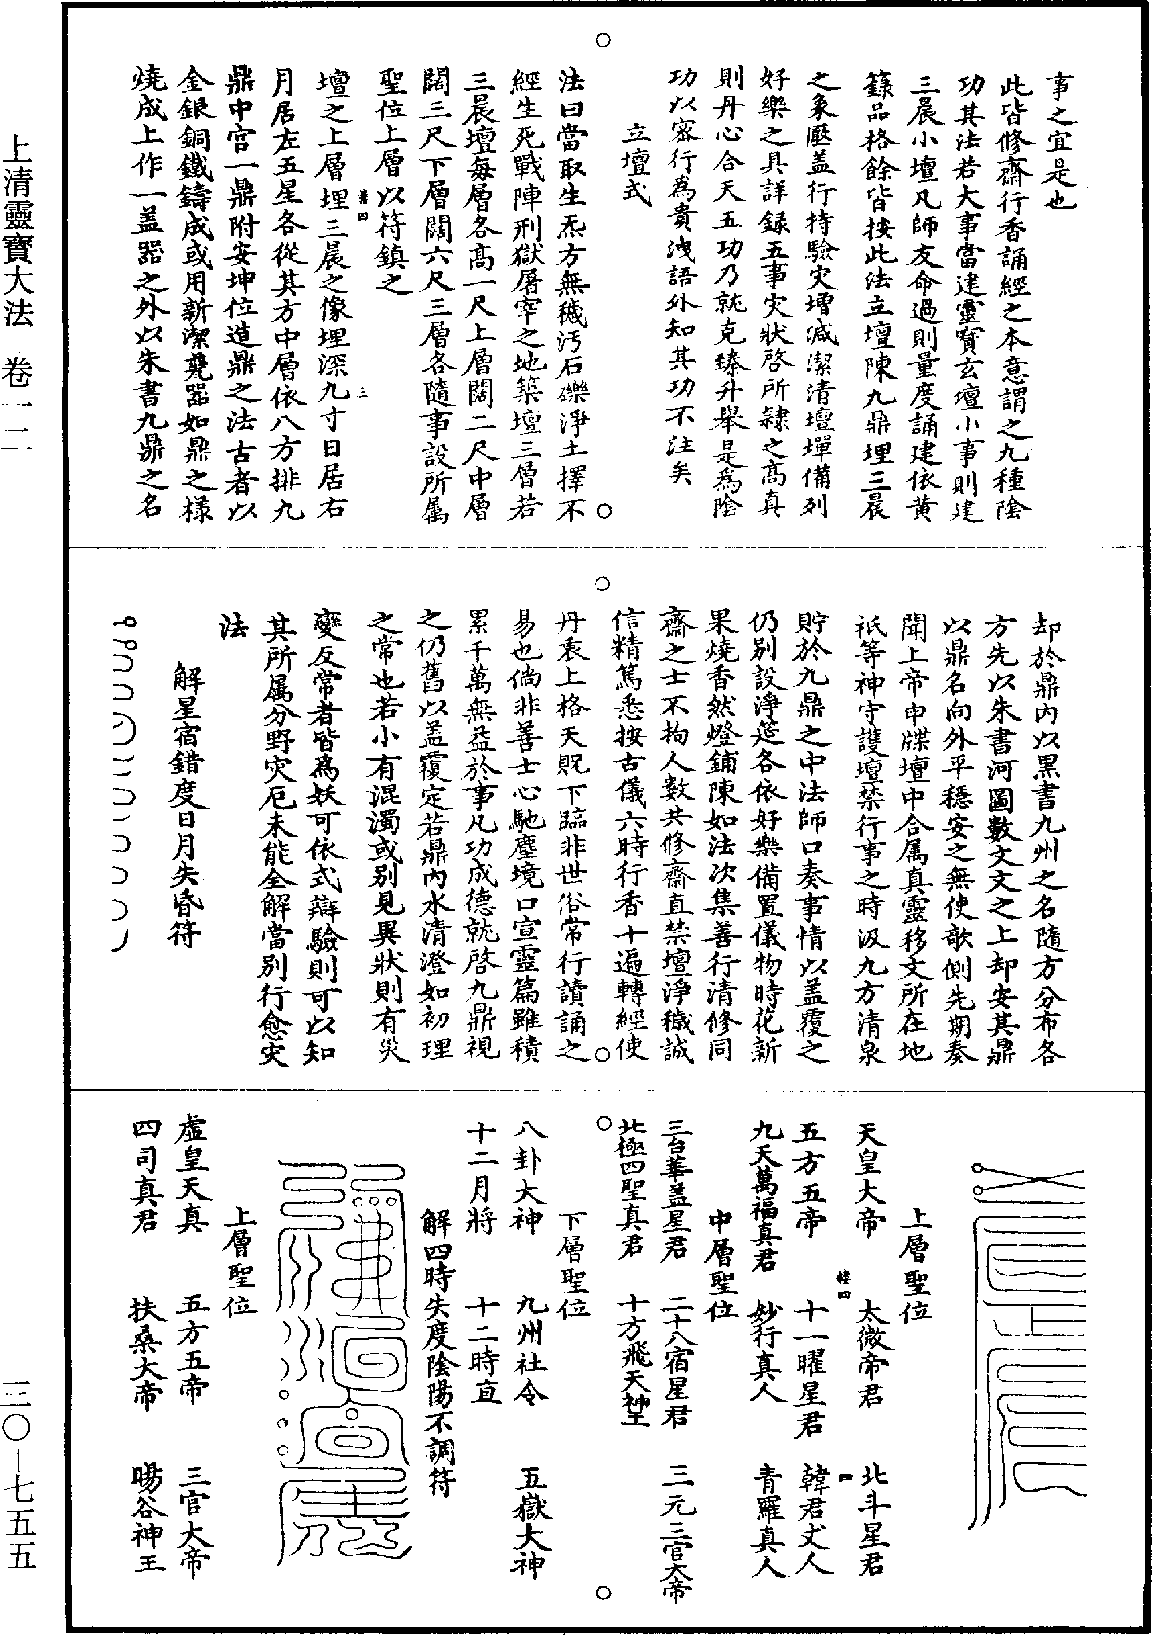 事之宜是也
此皆修齋行香誦經之本意謂之九種陰
功其法若大事當建靈寶玄壇小事則建
三晨小壇凡師友命過則量度誦建依黃
籙品格餘皆按此法立壇陳九鼎埋三晨
之象壓蓋行持驗灾增減潔清壇墠備列
好樂之具詳録五事灾狀啓所隸之髙真
則丹心合天五功乃就克臻升舉是爲陰
功以密行爲貴洩語外知其功不注矣
立壇式
法曰當取生炁方無穢汚石礫淨土擇不
經生死戰陣刑獄屠宰之地築壇三層若
三晨壇每層各髙一尺上層闊二尺中層
闊三尺下層闊六尺三層各隨事設所属
聖位上層以符鎮之
壇之上層埋三晨之像埋深九寸日居右
月居左五星各從其方中層依八方排九
鼎中宫一鼎附安坤位造鼎之法古者以
金銀銅鐵鑄成或用新潔甕器如鼎之樣
燒成上作一蓋器之外以朱書九鼎之名
却於鼎内以黑書九州之名隨方分布各
方先以朱書河圖數文文之上却安其鼎
以鼎名向外平穩安之無使欹側先期奏
聞上帝申牒壇中合属真靈移文所在地
祇等神守䕶壇禁行事之時汲九方清泉
貯於九鼎之中法師口奏事情以蓋覆之
仍别設淨筵各依好樂備置儀物時花新
果燒香然燈鋪陳如法次集善行清修同
齋之士不拘人數共修齋直禁壇淨穢誠
信精篤悉按古儀六時行香十遍轉經使
丹衷上格天貺下臨非世俗常行讀誦之
易也倘非善士心馳塵境口宣靈篇雖積
累千萬無益於事凡功成德就啓九鼎視
之仍舊以蓋覆定若鼎内水清澄如初理
之常也若小有混濁或别見異狀則有灾
變反常者皆爲妖可依式辯驗則可以知
其所属分野灾厄未能全解當别行愈灾
法
解星宿錯度日月失昏符
上層聖位
天皇大帝　太微帝君　北斗星君
五方五帝　十一曜星君　韓君丈人
九天萬福真君　妙行真人　青羅真人
中層聖位
三台華蓋星君　二十八宿星君　三元三官大帝
北極四聖真君　十方飛天神王
下層聖位
八卦大神　九州社令　五嶽大神
十二月將　十二時直
解四時失度陰陽不調符
上層聖位
虛皇天真　五方五帝　三官大帝
四司真君　扶桑大帝　暘谷神王
上清靈寶大法　卷一二
三〇－七五五